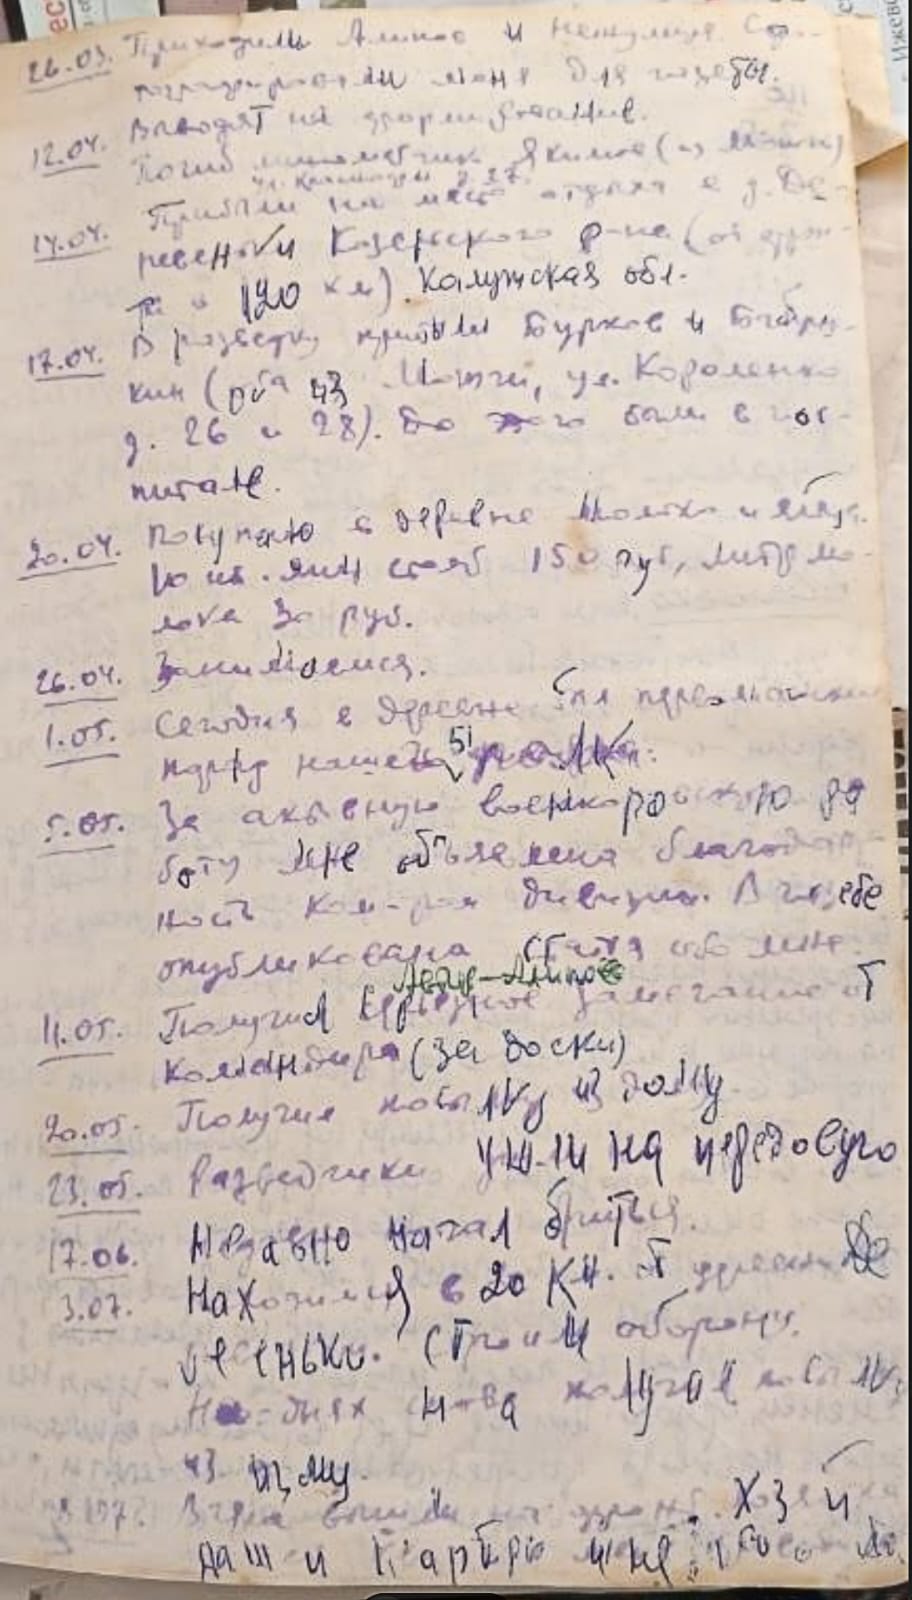 26.03. Приходили Алипов и
меня для газеты.
12.04. Выводят на формирование.
Погиб минометчик Якимов (из
14.04. Прибыли на место отдыха в д. Де-
ревеньки Козельского р-на (от фрон-
та в 120 км). Калужская обл.
17.04. В разведку прибыли Бурков и
кин (оба из Можги, ул. Короленко
д. 26 и 28). До этого были в гос-
питале.
20.04. Покупаю в деревне молоко и яйца.
10 шт. яиц стоят 150 руб, литр мо-
лока 30 руб.
26.04. Занимаемся.
1.05. Сегодня в деревне был
парад нашей
5.05. За активную военкоровскую ра
боту мне объявлена благодар-
ность ком-ром дивизии. В газете
опубликована статья обо мне.
Автор – Алипов
11.05. Получил серьезное замечание от
командира (за доски)
20.05. Получил посылку из дому
23.05. Разведчики ушли на передовую
17.06. Недавно начал бриться.
3.07. Находимся в 20 км. от деревни Де
ревеньки. Строим оборону.
На-днях снова получил посылку
из дому.
Вчера вышли на фронт.